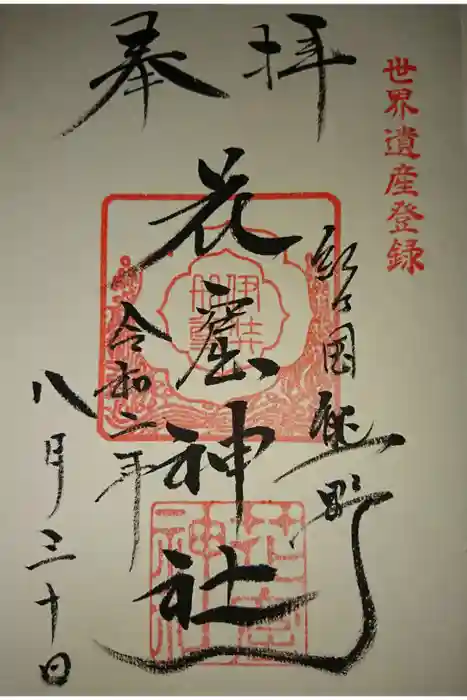 世界遺産登録
奉拝
紀の国熊野
花窟神社
令和二年
八月三十日
花窟
神社